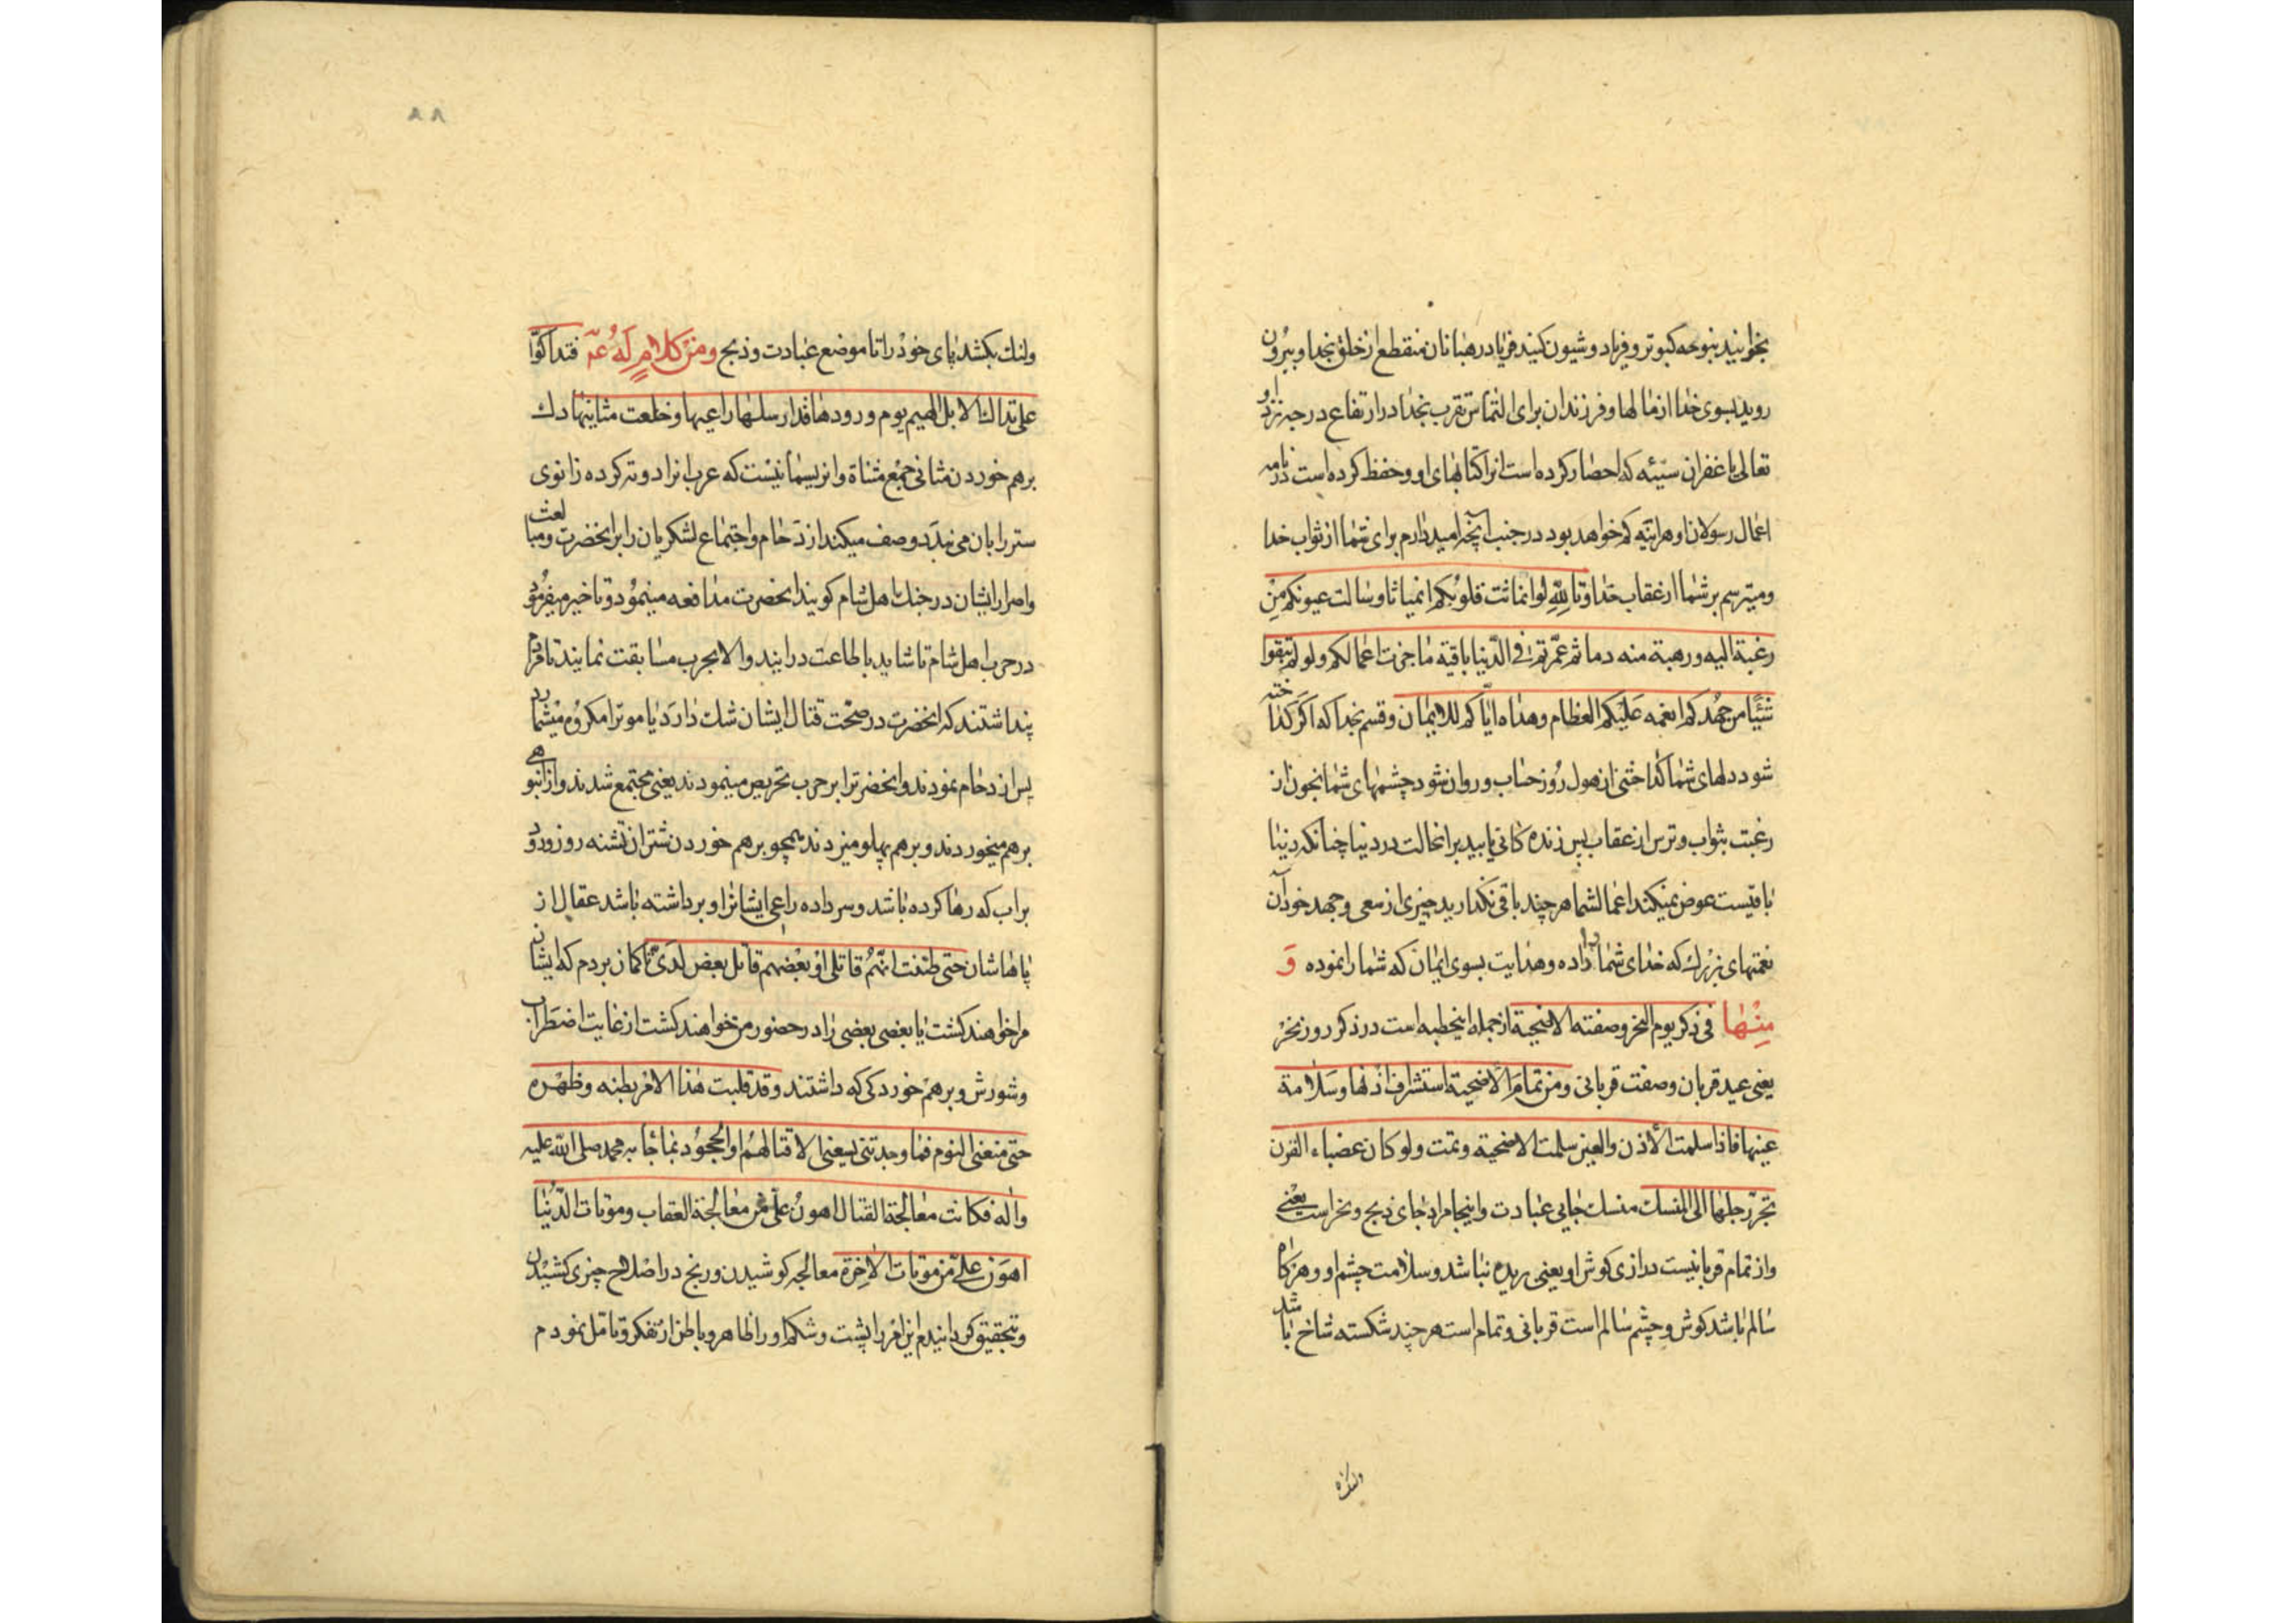 بخوانید بنوحه کبوتر و فریاد و شیون کنید فریاد رهبانان منقطع از خلق بخدا و بیرون
روید بسوی خدا از مالها و فرزندان برای التماس تقرب بخدا در ارتفاع درجه نزد او
تعالی یا غفران سیّئه که احصار کرده است انرا کتابهای او و حفظ کرده است در نامه
اعمال رسولان او هراینه کم خواهد بود در جنب آنچه امید دارم برای شما از ثواب خدا
و میترسم بر شما از عقاب خدا و تاللّهِ لو انماثت قلوبُکم انمیاثا و سالت عیونکم مِنْ
رغبة الیه و رهبة منه دما ثم عمّرتم فی الدّنیا باقیة ما جزت اعمالکم و لو لم تبقوا
شَیْئًا من جُهدکم انعمه عَلَیکم العظام و هداه ایّاکم للایمان و قسم بخدا که اگر کداخته
شود دلهای شما کداختنی از هول روز حساب و روان شود چشمهای شما بخون از
رغبت بثواب و ترس از عقاب پس زنده کانی یابید بر انحالت در دنیا چنانکه دنیا
باقیست عوض نمیکند اعمال شما هر چند باقی نکذارید چیزی از سعی و جهد خود آن
نعمتهای بزرک که خدای شما را داده و هدایت بسوی ایمان که شما را نموده وَ
مِنْها فی ذکر یوم النحر و صفته الاضحیة از جمله اینخطبه است در ذکر روز نحر
یعنی عید قربان و صفت قربانی و من تمام الاضحیة استشراف اذنها و سَلامة
عینها فاذا سلمت الاُذن و العین سلمت الاضحیة و تمت و لو کان عضباء القرن
تجرّ رجلها الی المنسک منسک جایی عبادت و اینجا مراد جای ذبح و نحر است یعنی
و از تمام قربانیست درازی کوش او یعنی بریده نباشد و سلامت چشم او و هرکاه
سالم باشد کوش و چشم سالم است قربانی و تمام است هر چند شکسته شاخ باشد
۸۸
و لنک بکشد پای خود را تا موضع عبادت و ذبح وَمنْ کلامٍ لَهُ عم فتداکوّا
علی تداک الابل الهیم یوم ورودها قد ارسلها راعیها و خلعت مثانیها دک
برهم خوردن مثانی جمع مثناة و انریسمانیست که عرب انرا دو ته کرده زانوی
ستر را بان می بندد وصف میکند ازدحام و اجتماع لشکریان را بر انحضرت و مبالغت
و اصرار ایشان در جنک با اهل شام کویند انحضرت مدافعه مینمود و تاخیر میفرمود
در حرب اهل شام تا شاید باطاعت درایند و الا بحرب مسابقت نمایند تا مردم
پنداشتند که انحضرت در صحّت قتال ایشان شک دارد یا موترا مکروه میشمارد
پس ازدحام نمودند و انحضرترا بر حرب تحریص مینمودند یعنی مجتمع شدند و از انبوهی
برهم میخوردند و برهم پهلو میزدند همچو برهم خوردن شتران تشنه روز ورود
براب که رها کرده باشد و سر داده راعی ایشانرا و برداشته باشد عقال از
پاهاشان حتی ظننت انّهُم قاتلی اوْ بعْضهم قاتل بعض لدَیّ تا کمان بردم که ایشان
مرا خواهند کشت یا بعضی بعضی را در حضور من خواهند کشت از غایت اضطراب
و شورش و برهم خوردکی که داشتند و قد قلبت هٰذا الامْر بطنه و ظهْره
حتی منعنی النوم فما وجدتنی یسعنی الا قتالهُم او الجحُود بما جا به محمد صلی اللّه علیه
و اله فکانت معالجة القتال اهون علیَّ من معالجة العقاب و موتات الدّنیا
اهوَن علیّ من موتات الاخرة معالجه کوشیدن و رنج در اصلاح چیزی کشیدن
و بتحقیق کردانیدم این امر را پشت و شکم او را ظاهر و باطن از تفکر و تامل نمودم